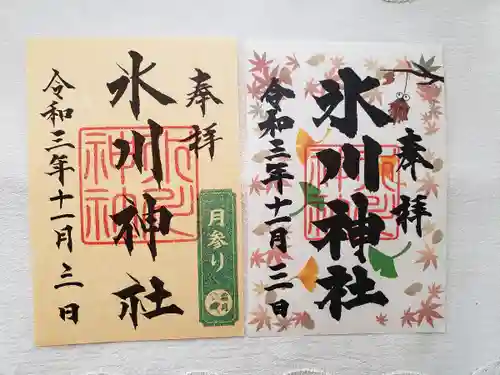 奉拝
氷川神社
令和三年十一月三日
月参り
奉拝
氷川神社
令和三年十一月三日